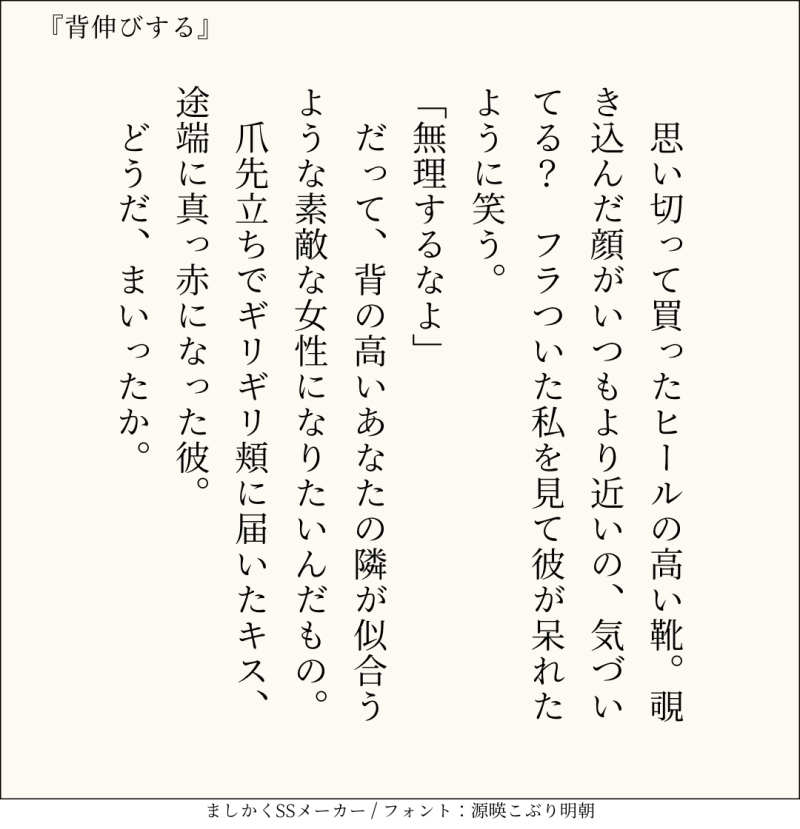 『背伸びする』
　思い切って買ったヒールの高い靴。覗
き込んだ顔がいつもより近いの、気づい
てる？　フラついた私を見て彼が呆れた
ように笑う。
「無理するなよ」
　だって、背の高いあなたの隣が似合う
ような素敵な女性になりたいんだもの。
　爪先立ちでギリギリ頬に届いたキス、
途端に真っ赤になった彼。
　どうだ、まいったか。
ましかくSSメーカー / フォント：源暎こぶり明朝